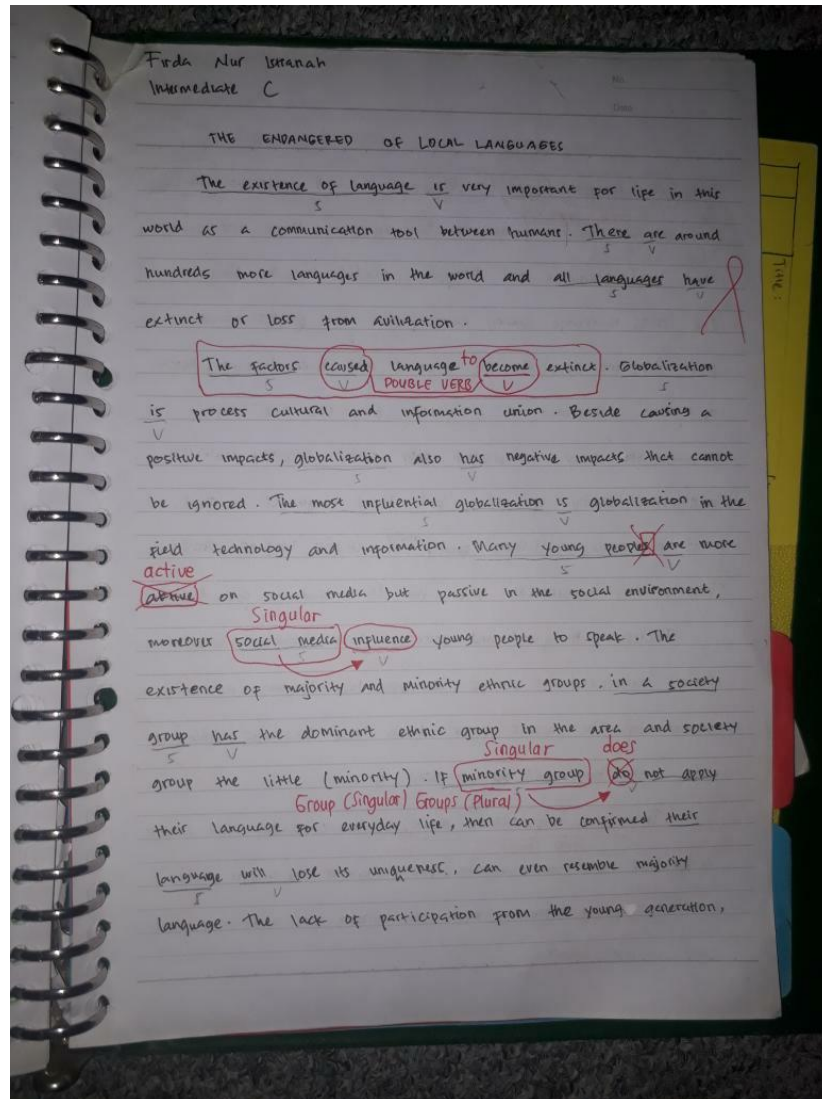 Firda Nur Istianah
Intermediate C
No.
Date
THE ENDANGERED OF LOCAL LANGUAGES
The existence of language is very important for life in this
S V
world as a communication tool between humans. There are around
S V
hundreds more languages in the world and all languages have
S V
Title:
extinct or loss from civilization.
to
The factors caused language become extinct. Globalization
S V DOUBLE VERB V S
is process cultural and information union. Beside causing a
V
positive impacts, globalization also has negative impacts that cannot
S V
be ignored. The most influential globalization is globalization in the
S V
field technology and information. Many young peoples are more
active S V
on social media but passive in the social environment,
Singular
moreover social media influence young people to speak. The
S V
existence of majority and minority ethnic groups. in a society
group has the dominant ethnic group in the area and society
S V Singular does
group the little (minority). If minority group do not apply
Group (Singular) Groups (Plural) V
their language for everyday life, then can be confirmed their
language will lose its uniqueness, can even resemble majority
S V
language. The lack of participation from the young generation,